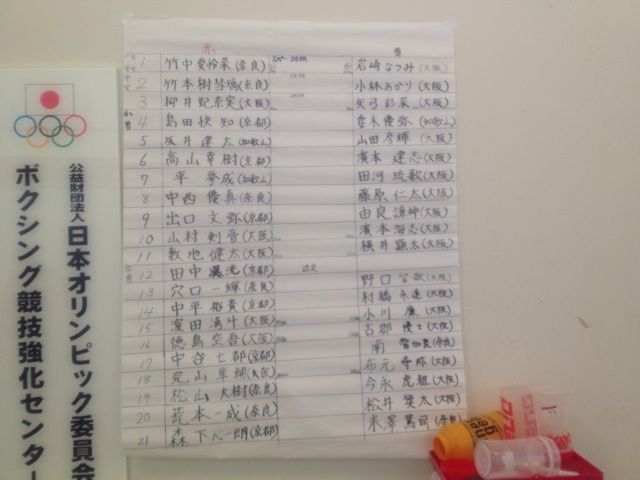 赤 青
1 竹中愛怜菜(奈良) 岩崎なつみ(大阪)
2 竹本樹瑳璃(奈良) 小林あかり(大阪)
3 柳井妃奈実(大阪) 矢弓彩菜(大阪)
4 島田快知(京都) 優弥(和歌山)
5 坂井建太(和歌山) 山田彦輝(大阪)
6 高山幸樹(京都) 濱本建志(大阪)
7 平 拳成(和歌山) 田河琉歌(大阪)
8 中西優真(奈良) 藤原仁太(大阪)
9 出口文弥(京都) 由良謙神(大阪)
10 山村剣晋(大阪) 濱本海志(大阪)
11 敷地健太(大阪) 横井顕太(大阪)
12 田中 (京都) 認定
13 穴口一輝(奈良) 野口 (大阪)
14 中平裕貴(京都) 村橋 (大阪)
15 濱田湧斗(大阪) 小川 (大阪)
16 徳島空吾(大阪) 古郡 (大阪)
17 中谷七都(京都) 南 (奈良)
18 完山隼輔(大阪) 布元 (大阪)
19 松山大樹(奈良) 今永虎雅(大阪)
20 荒本一成(奈良) 松井奨太(大阪)
21 森下心一朗(京都) 米澤篤司(奈良)
公益財団法人 日本オリンピック委員会
ボクシング競技強化センター